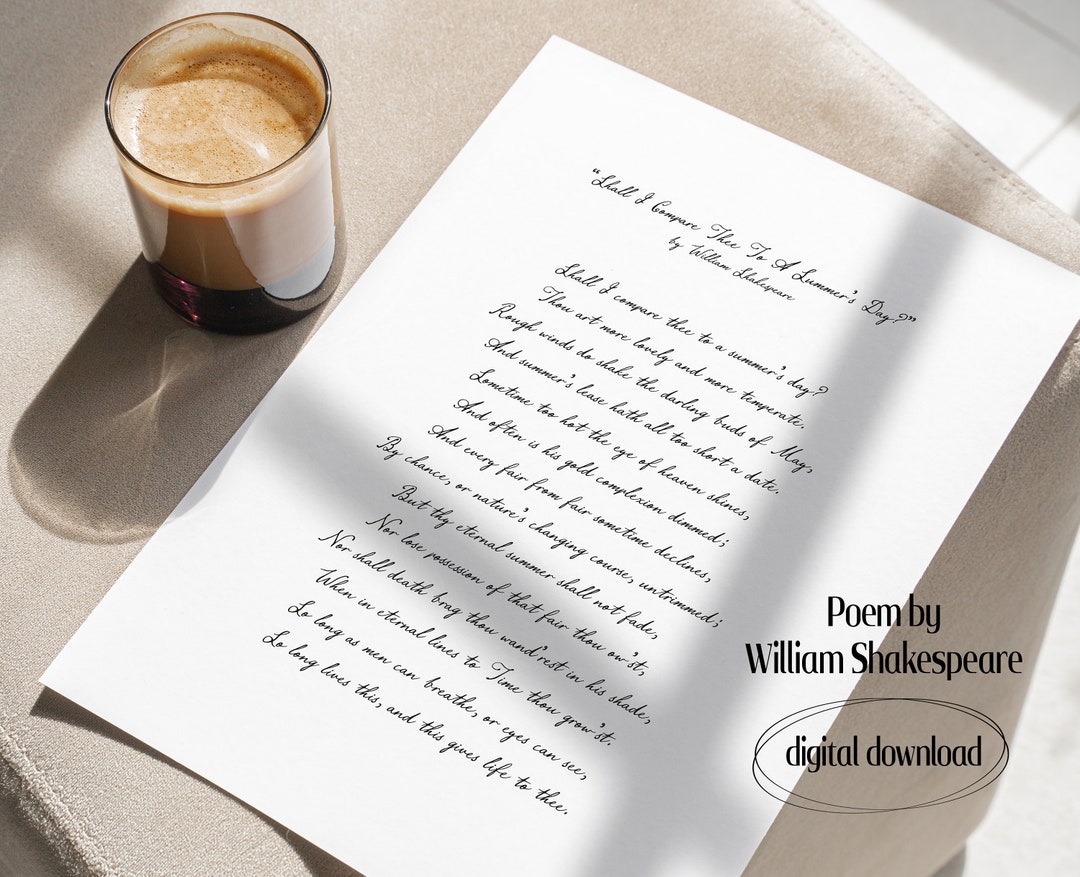 “Shall I Compare Thee To A Summer’s Day?”
by William Shakespeare
Shall I compare thee to a summer’s day?
Thou art more lovely and more temperate.
Rough winds do shake the darling buds of May,
And summer’s lease hath all too short a date.
Sometime too hot the eye of heaven shines,
And often is his gold complexion dimmed;
And every fair from fair sometime declines,
By chance, or nature’s changing course, untrimmed;
But thy eternal summer shall not fade,
Nor lose possession of that fair thou ow’st,
Nor shall death brag thou wand’rest in his shade,
When in eternal lines to Time thou grow’st.
So long as men can breathe, or eyes can see,
So long lives this, and this gives life to thee.
Poem by
William Shakespeare
digital download